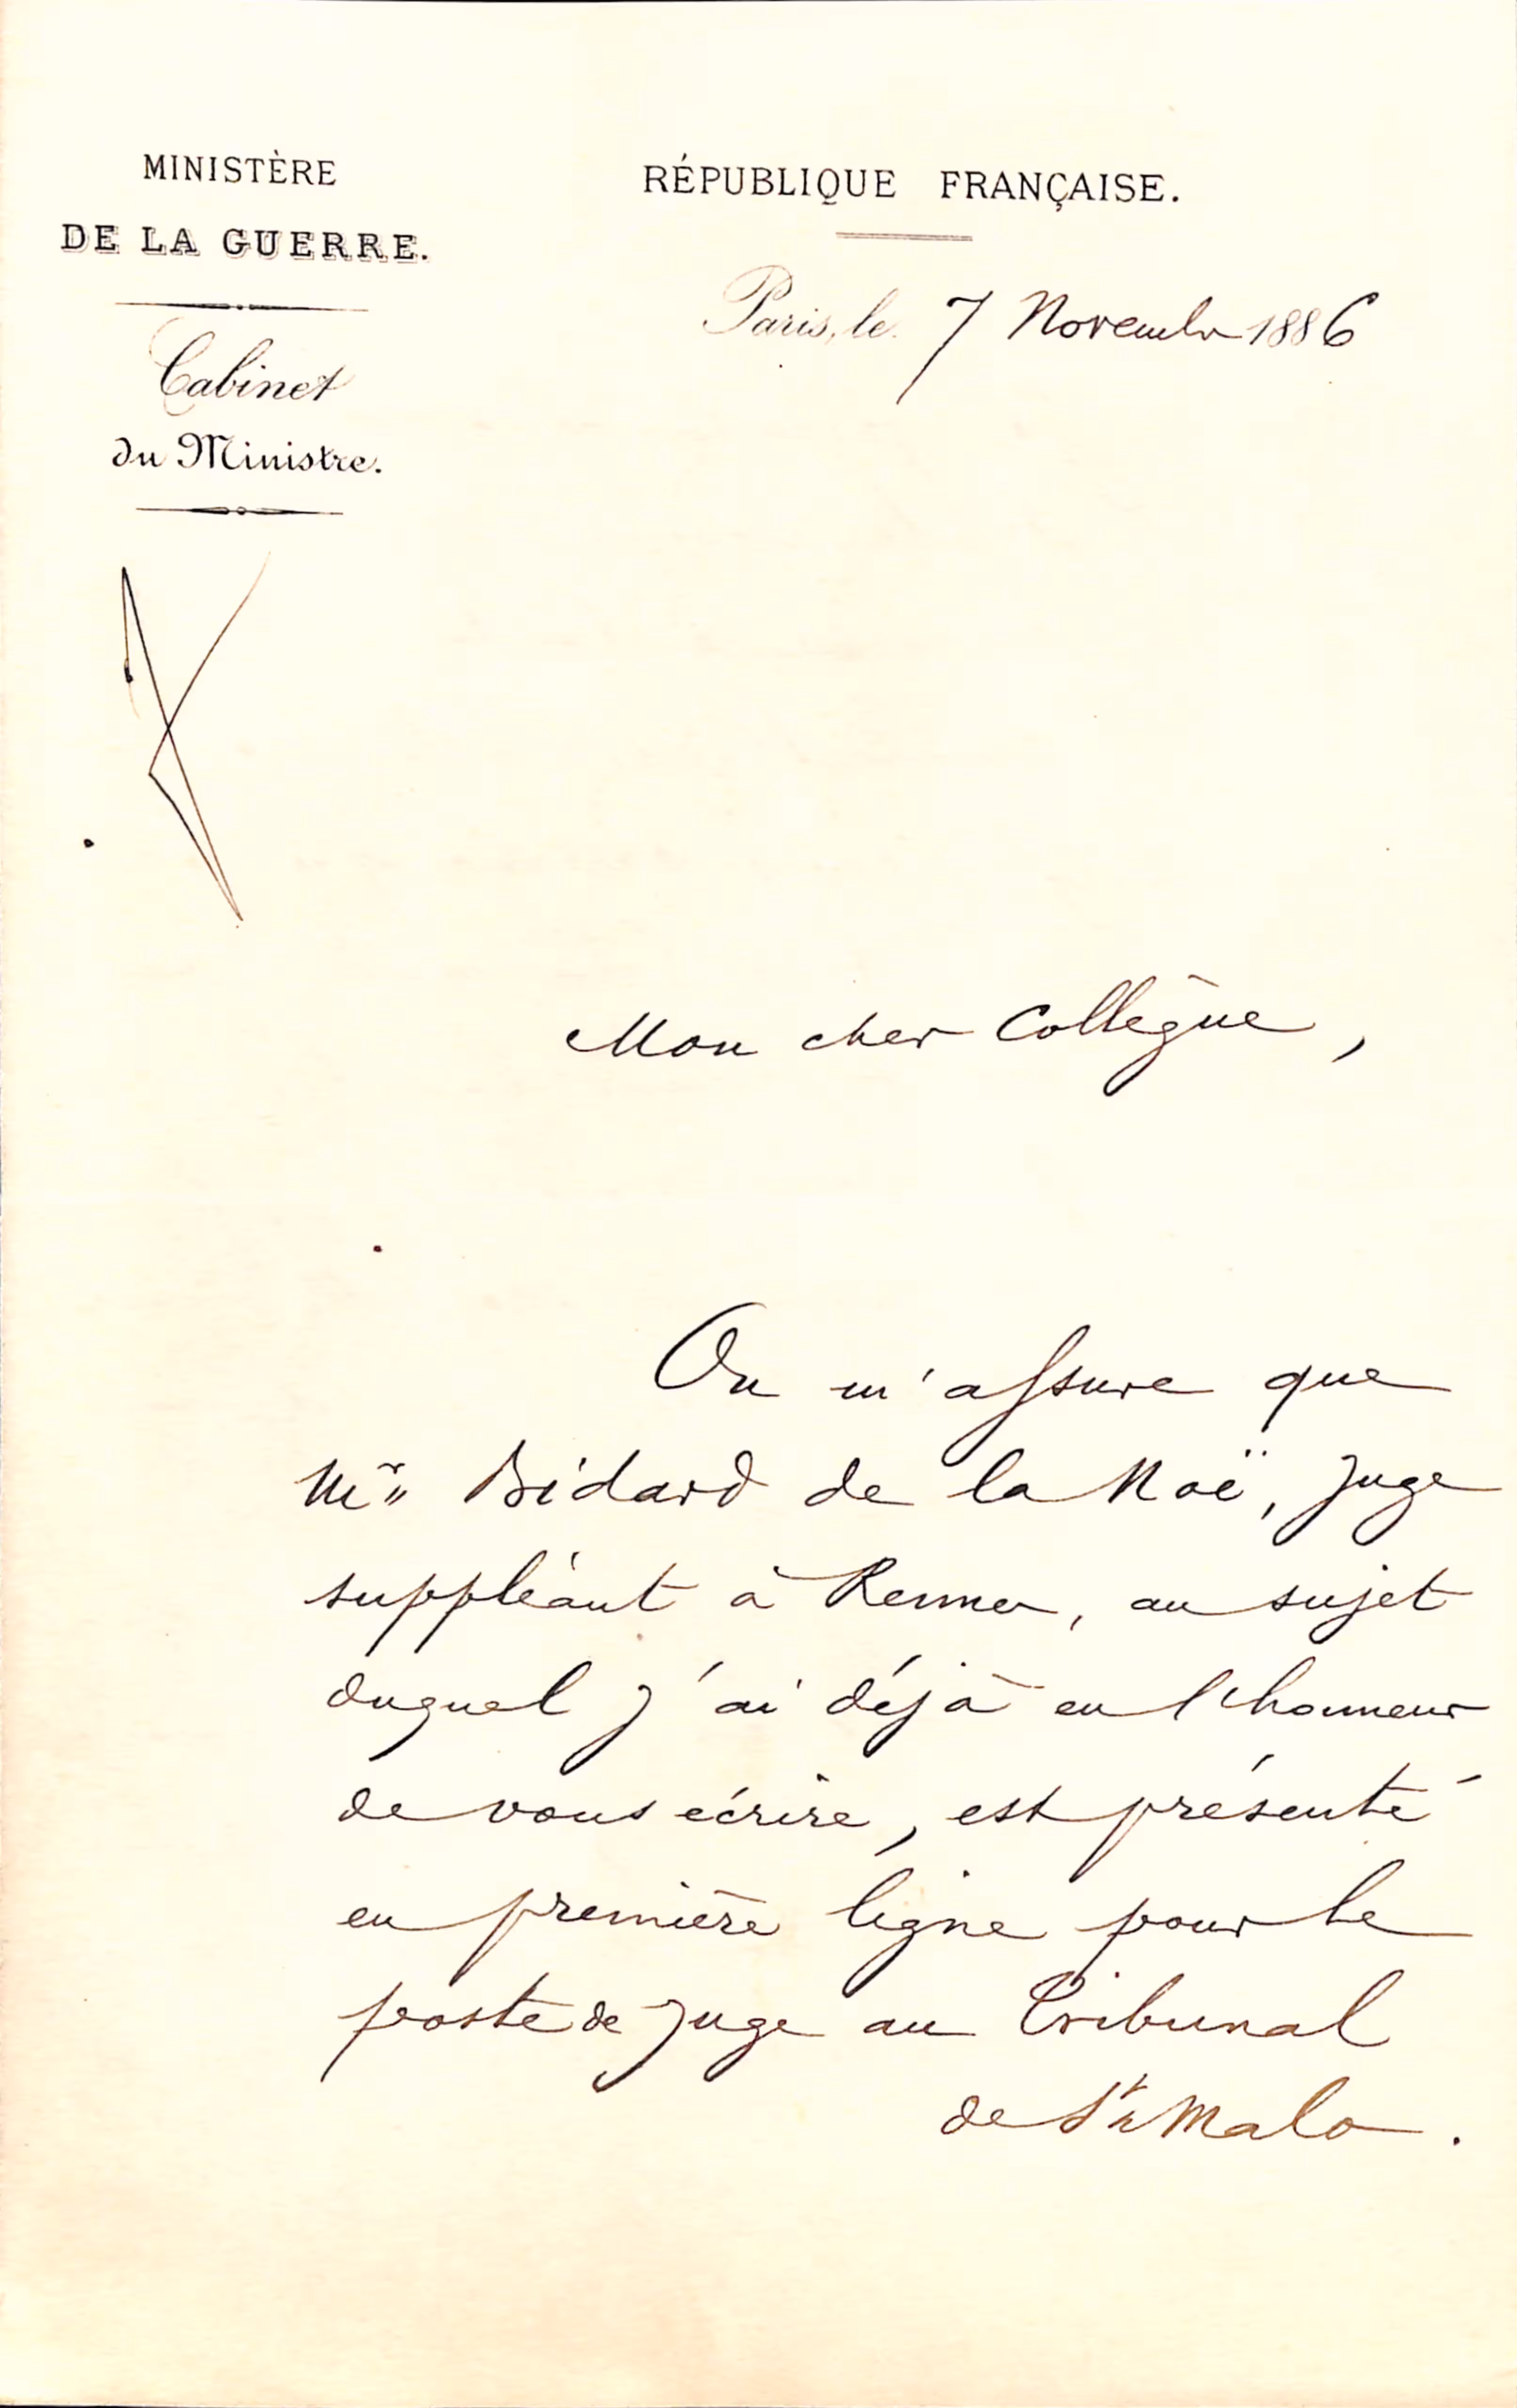 MINISTÈRE
DE LA GUERRE.
Cabinet
du Ministre.
RÉPUBLIQUE FRANÇAISE.
Paris, le 7 Novembre 1886
Mon cher Collègue,
On m'assure que
Mr Bidard de la Noë, Juge
suppléant à Rennes, au sujet
duquel j'ai déjà eu l'honneur
de vous écrire, est présenté
en première ligne pour le
poste de Juge au Tribunal
de St Malo.